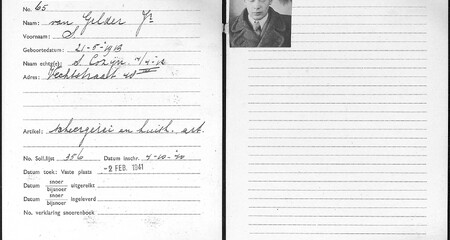 No. 65
Naam: van Gelder Jr
Voornaam: S.
Geboortedatum: 21-5-1913
Naam echtg(e): S.
Adres: Vechtstraat
Artikel: scheergerei en huish. art.
No. Soll.lijst 356 Datum inschr. 7-10-40
Datum toek: Vaste plaats -2 FEB. 1941
Datum snoer bijsnoer uitgereikt
Datum snoer bijsnoer ingeleverd
No. verklaring snoerenboek